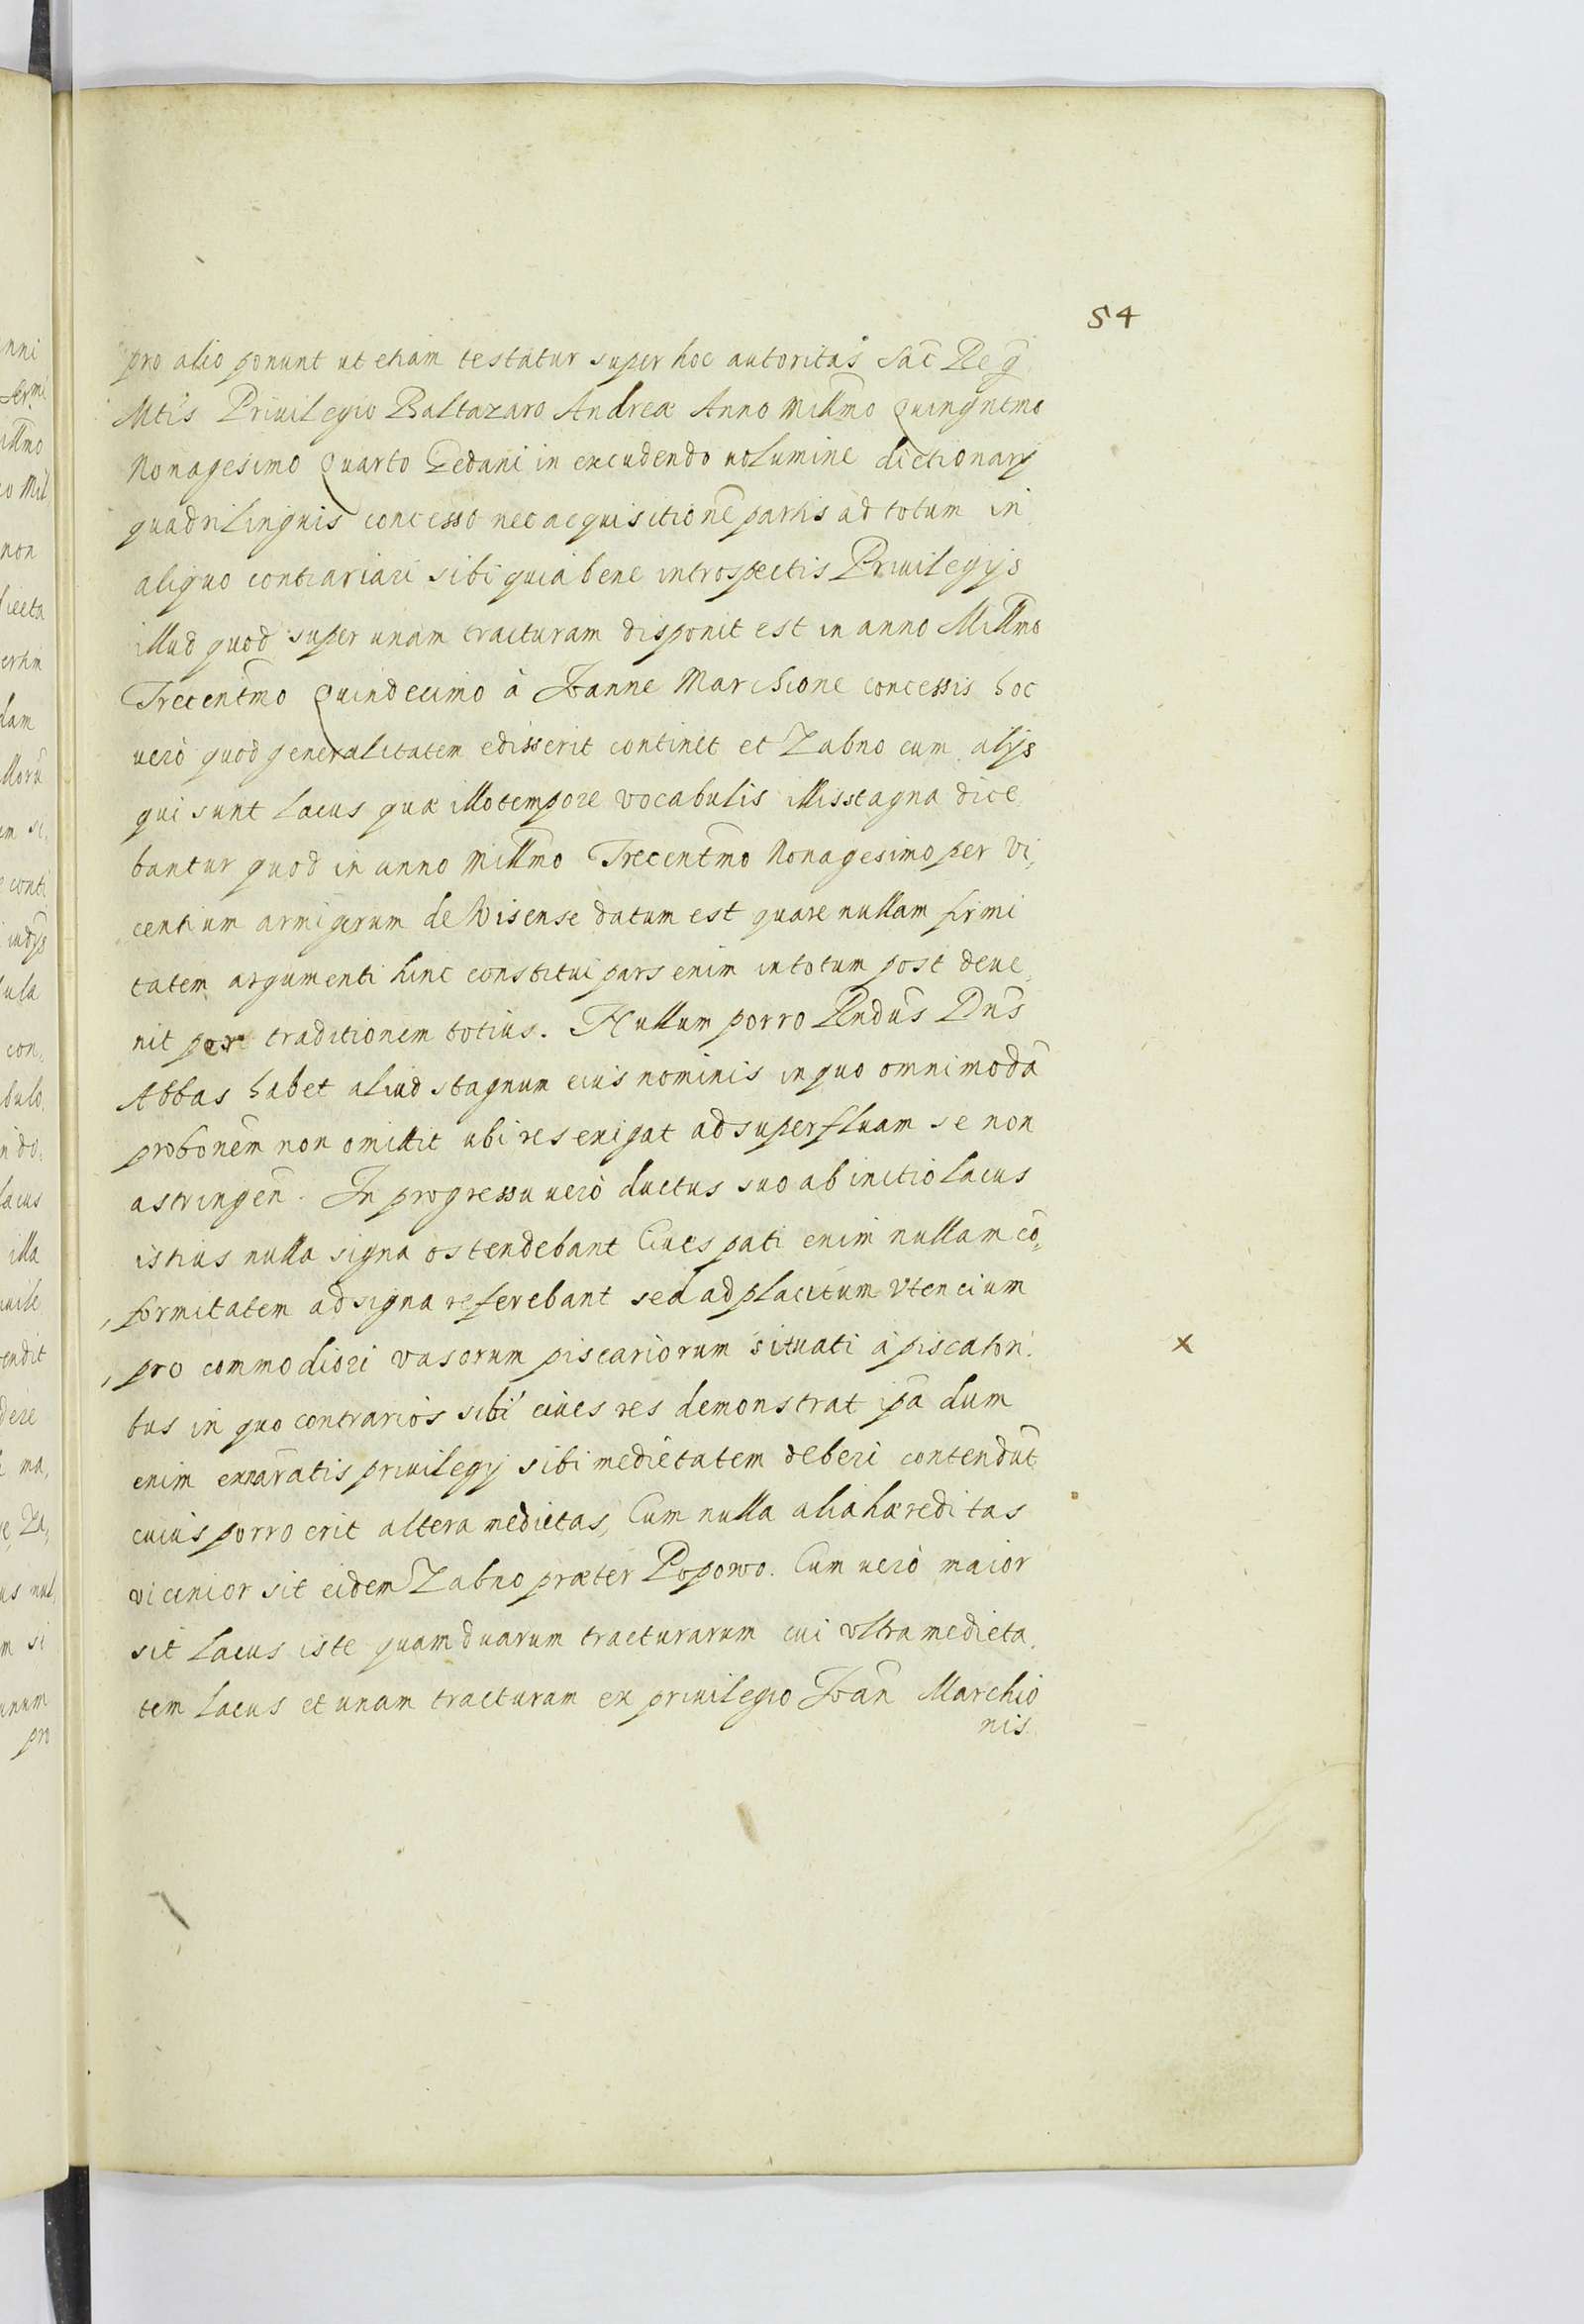 54
pro alio ponunt ut etiam testatur super hoc autoritas Sac̃ Reg̃
Mtis Priuilegio Baltazaro Andreæ Anno Millm̃o Quingntmo
Nonagesimo Quarto Gedani in excudendo uolumine dictionarÿ
quadrilinguis concesso nec acquisitionẽ partis ad totum in
aliquo contrariari sibi quia bene introspectis Priuilegÿs
illud quod super unam tracturam disponit est in anno Millm̃o
Trecentm̃o Quindecimo à Joanne Marchione concessis hoc
uerò quod generalitatem edisserit continet et Zabno cum alÿs
qui sunt lacus quæ illo tempore vocabulis illis stagna dice
bantur quod in anno Millm̃o Trecentm̃o Nonagesimo per Vi,
centium armigerum de Wisense datum est quare nullam firmi
tatem argumenti hinc constitui pars enim in totum post deue,
nit per traditionem totius. Nullum porro Rndus Dns
Abbas habet aliud stagnum eius nominis in quo omnimodã
probonem̃ non omittit ubi res exigat ad superfluam se non
astringeñ. In progressu uerò ductus suo ab initio lacus
istius nulla signa ostendebant Ciues pati enim nullam cõ,
,formitatem ad signa referebant sed ad placitum vtencium
,pro commodiori vasorum piscariorum situati à piscatori.
x
bus in quo contrarios sibi ciues res demonstrat ipã dum
enim exnaratis priuilegÿ sibi medietatem deberi contendũt
cuius porro erit altera medietas, Cum nulla alia hæreditas
vicinior sit eidem Zabno præter Popowo. Cum uerò maior
sit lacus iste quam duarum tracturarum cui vltra medieta,
tem lacus et unam tracturam ex priuilegio Joañ Marchio
nis